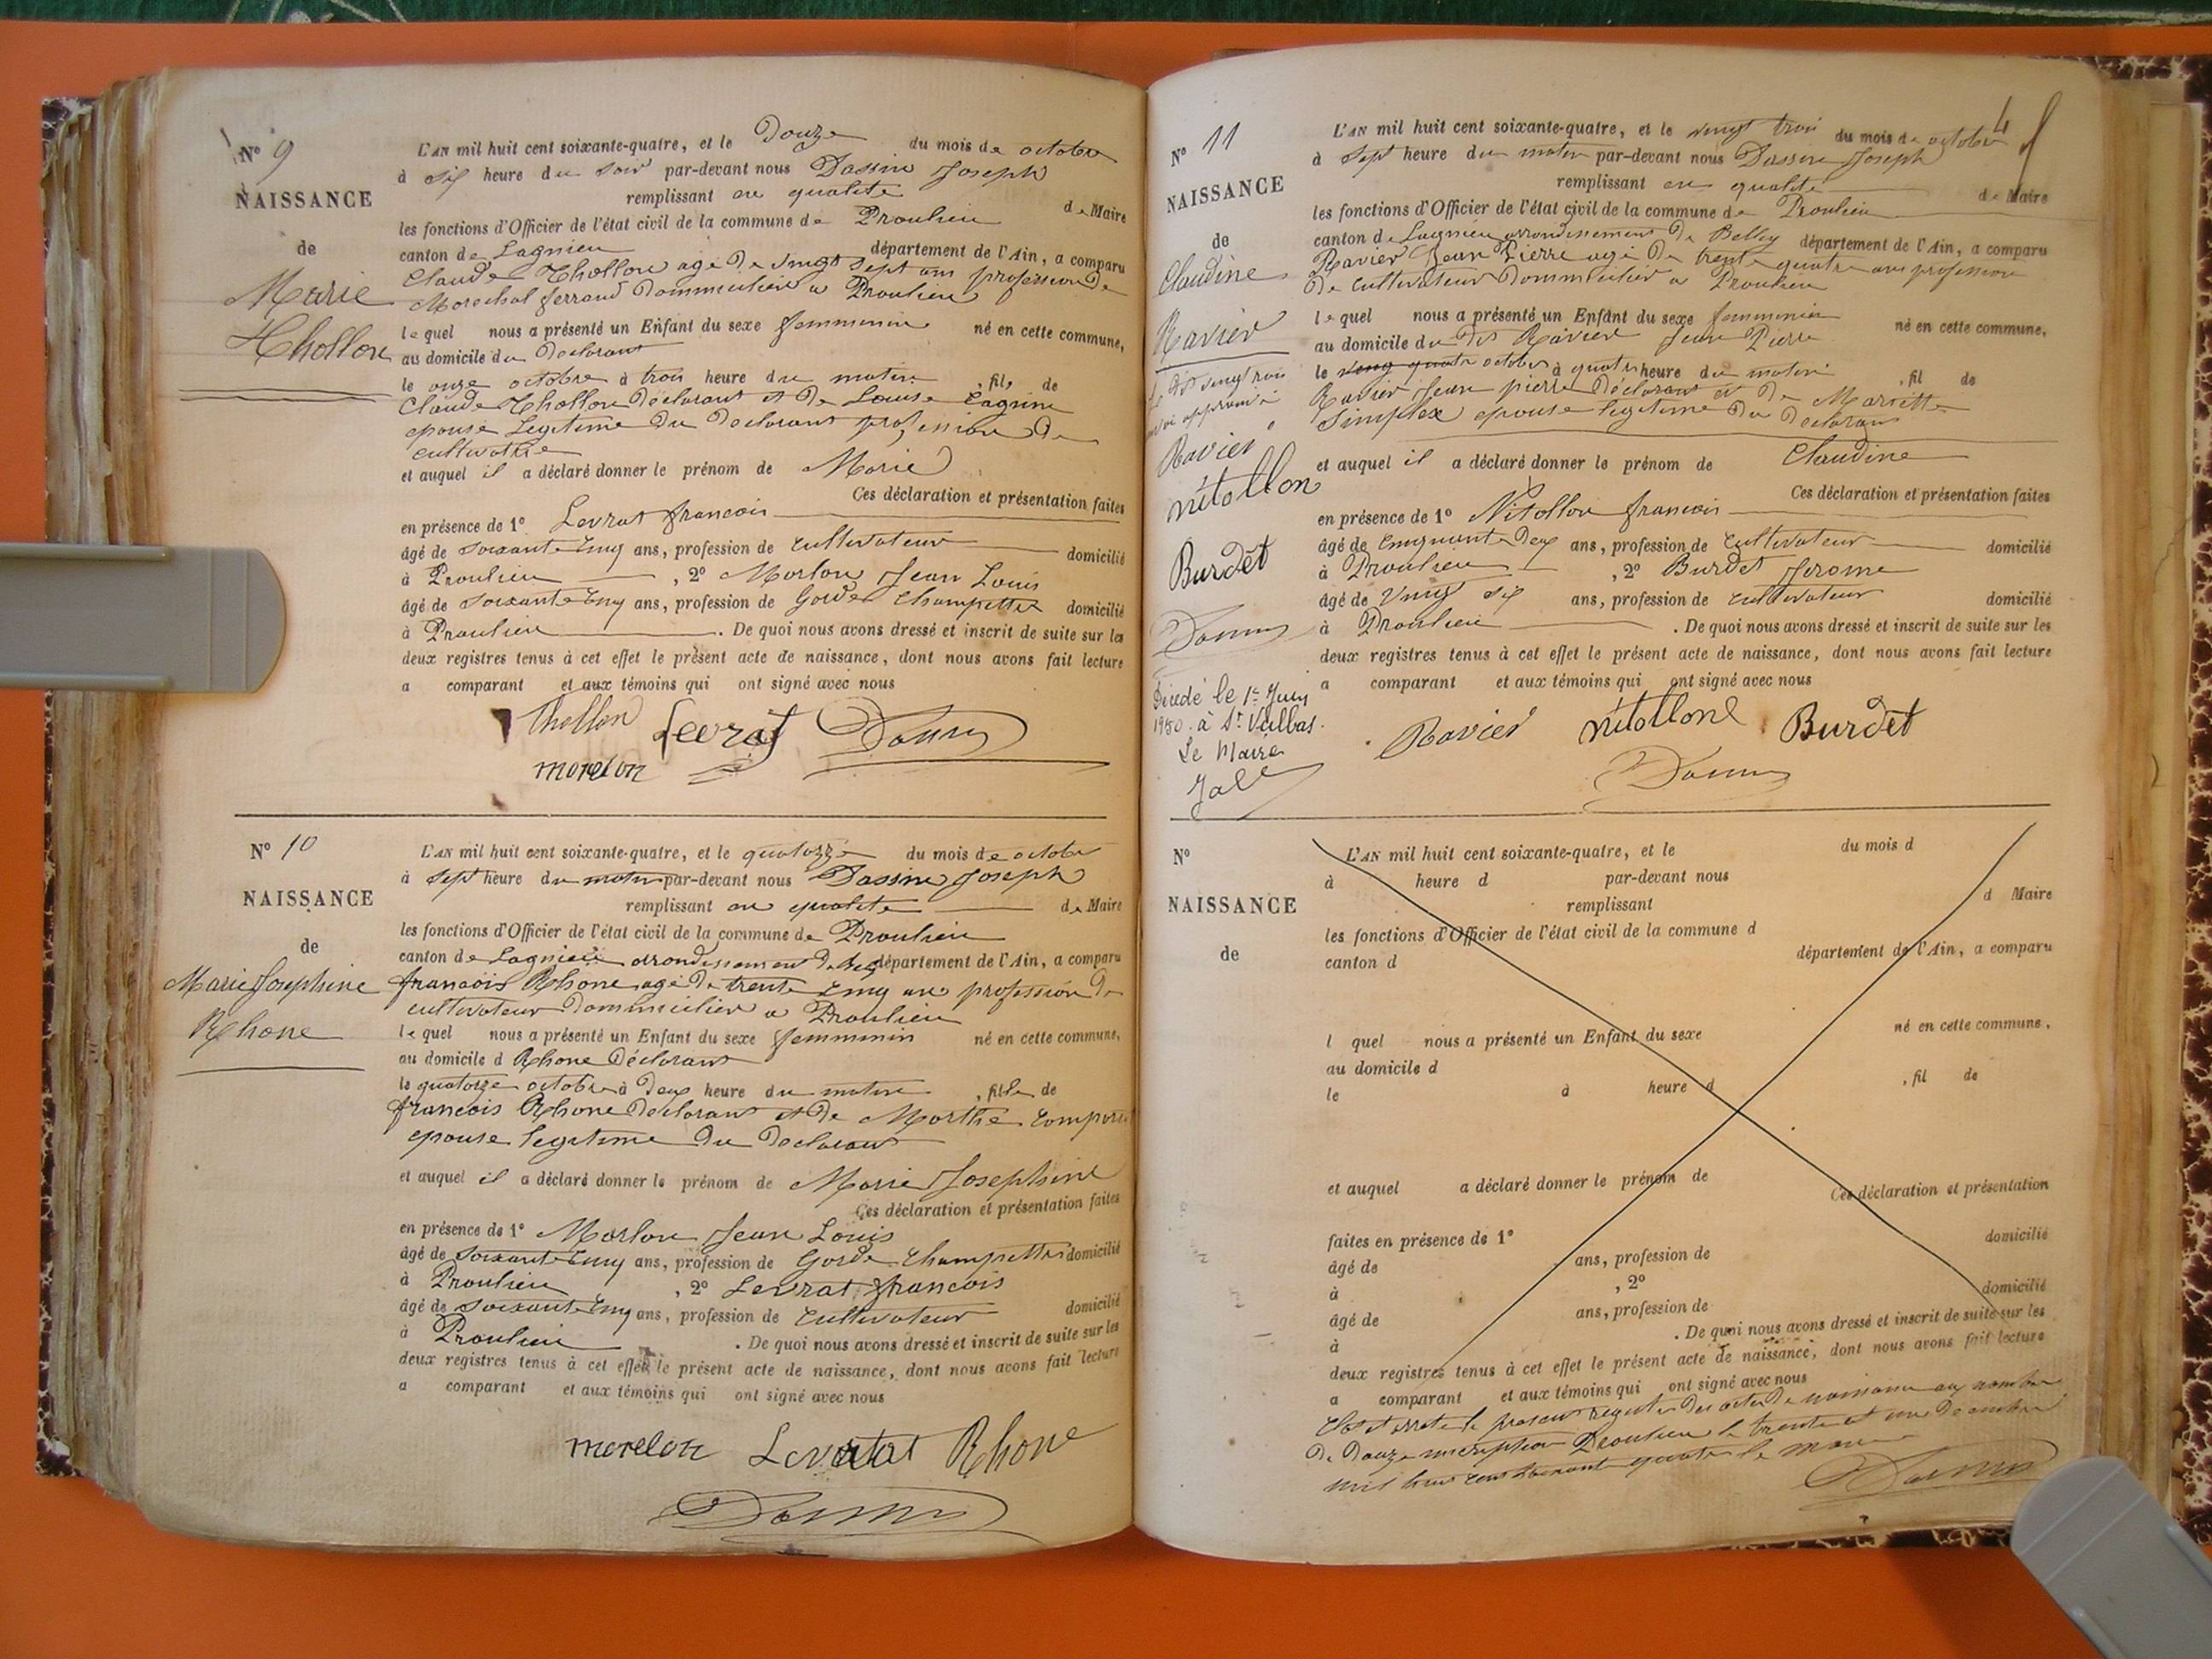 N° 9
NAISSANCE
de
Marie
Thollon
L'AN mil huit cent soixante-quatre, et le Douze du mois de octobre
à six heure du soir par-devant nous Dassin Joseph
remplissant en qualité de Maire
les fonctions d'Officier de l'état civil de la commune de Proulieu
canton de Lagnieu département de l'Ain, a comparu
Claude Thollon agé de vingt sept ans profession de
Marechal ferrand Dommicilier a Proulieu
lequel nous a présenté un Enfant du sexe femminin né en cette commune,
au domicile du Declarant
le onze octobre à trois heure du matin, fils de
Claude Thollon Déclarant et de Louise
epouse Legitime du Declarant profession de
cultivatrice
et auquel il a déclaré donner le prénom de Marie
Ces déclaration et présentation faites
en présence de 1° Levrat francois
âgé de soixante cinq ans, profession de cultivateur domicilié
à Proulieu, 2° Morlon Jean Louis
âgé de soixante cinq ans, profession de Garde Champettre domicilié
à Proulieu. De quoi nous avons dressé et inscrit de suite sur les
deux registres tenus à cet effet le présent acte de naissance, dont nous avons fait lecture
a comparant et aux témoins qui ont signé avec nous
Thollon Levrat Dassin
morelon
N° 10
NAISSANCE
de
Marie Josephine
Rhone
L'AN mil huit cent soixante-quatre, et le quatorze du mois de octobre
à sept heure du matin par-devant nous Dassin Joseph
remplissant en qualité de Maire
les fonctions d'Officier de l'état civil de la commune de Proulieu
canton de Lagnieu arrondissement de département de l'Ain, a comparu
francois Rhone agé de trente cinq ans profession de
cultivateur Dommicilier a Proulieu
lequel nous a présenté un Enfant du sexe femminin né en cette commune,
au domicile d Rhone Déclarant
le quatorze octobre à deux heure du matin, fille de
francois Rhone Declarant et de Marthe
epouse legitime du Declarant
et auquel il a déclaré donner le prénom de Marie Josephine
Ces déclaration et présentation faites
en présence de 1° Morlon Jean Louis
âgé de soixante cinq ans, profession de Garde Champettre domicilié
à Proulieu, 2° Levrat francois
âgé de soixante cinq ans, profession de cultivateur domicilié
à Proulieu. De quoi nous avons dressé et inscrit de suite sur les
deux registres tenus à cet effet le présent acte de naissance, dont nous avons fait lecture
a comparant et aux témoins qui ont signé avec nous
morelon Levratat Rhone
Dassin
4
N° 11
NAISSANCE
de
Claudine
Ravier
vingt trois
approuvé
Ravier
nitollon
Burdet
Dassin
Décédé le 1er Juin
à St Vulbas.
Le Maire
L'AN mil huit cent soixante-quatre, et le vingt trois du mois de octobre
à sept heure du matin par-devant nous Dassin Joseph
remplissant en qualité de Maire
les fonctions d'Officier de l'état civil de la commune de Proulieu
canton de Lagnieu arrondissement de Belley département de l'Ain, a comparu
Ravier Jean Pierre agé de trente quatre ans profession
de cultivateur Dommicilier a Proulieu
lequel nous a présenté un Enfant du sexe femminin né en cette commune,
au domicile du dit Ravier Jean Pierre
le octobre à quatre heure du matin, fil de
Ravier Jean pierre Déclarant et de Mariette
Simplex epouse legitime du Declarant
et auquel il a déclaré donner le prénom de Claudine
Ces déclaration et présentation faites
en présence de 1° Nitollon francois
âgé de cinquante deux ans, profession de cultivateur domicilié
à Proulieu, 2° Burdet Jerome
âgé de vingt six ans, profession de cultivateur domicilié
à Proulieu. De quoi nous avons dressé et inscrit de suite sur les
deux registres tenus à cet effet le présent acte de naissance, dont nous avons fait lecture
a comparant et aux témoins qui ont signé avec nous
Ravier nitollone Burdet
Dassin
N°
NAISSANCE
de
L'AN mil huit cent soixante-quatre, et le du mois d
à heure d par-devant nous
remplissant d Maire
les fonctions d'Officier de l'état civil de la commune d
canton d département de l'Ain, a comparu
l quel nous a présenté un Enfant du sexe né en cette commune,
au domicile d
le à heure d, fil de
et auquel a déclaré donner le prénom de
Ces déclaration et présentation
faites en présence de 1° domicilié
âgé de ans, profession de
à, 2° domicilié
âgé de ans, profession de
à. De quoi nous avons dressé et inscrit de suite sur les
deux registres tenus à cet effet le présent acte de naissance, dont nous avons fait lecture
a comparant et aux témoins qui ont signé avec nous
Clos et arreté le present registre des actes de naissance au nombre
de Douze inscription Proulieu le trente et un Decembre
mil huit cent soixante quatre le maire
Dassin